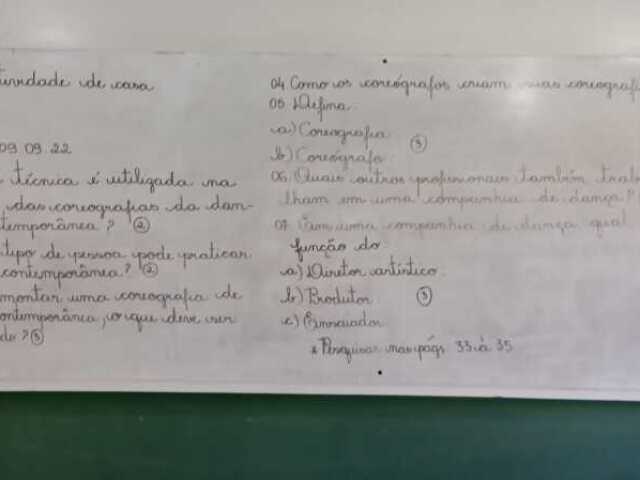 tividade de casa
09.09.22
técnica é utilizada na
das coreografias da dan-
temporânea? ②
tipo de pessoa pode praticar
contemporânea? ②
montar uma coreografia de
ontemporânea, o que deve ser
do? ③
04. Como os coreógrafos criam suas coreografi
05. Defina:
a) Coreografia
③
b) Coreógrafo
06. Quais outros profissionais também trab
lham em uma companhia de dança?
07. Em uma companhia de dança qual
função do
a) Diretor artístico
b) Produtor ③
c) Ensaiador
* Pesquisar nas págs 33 à 35